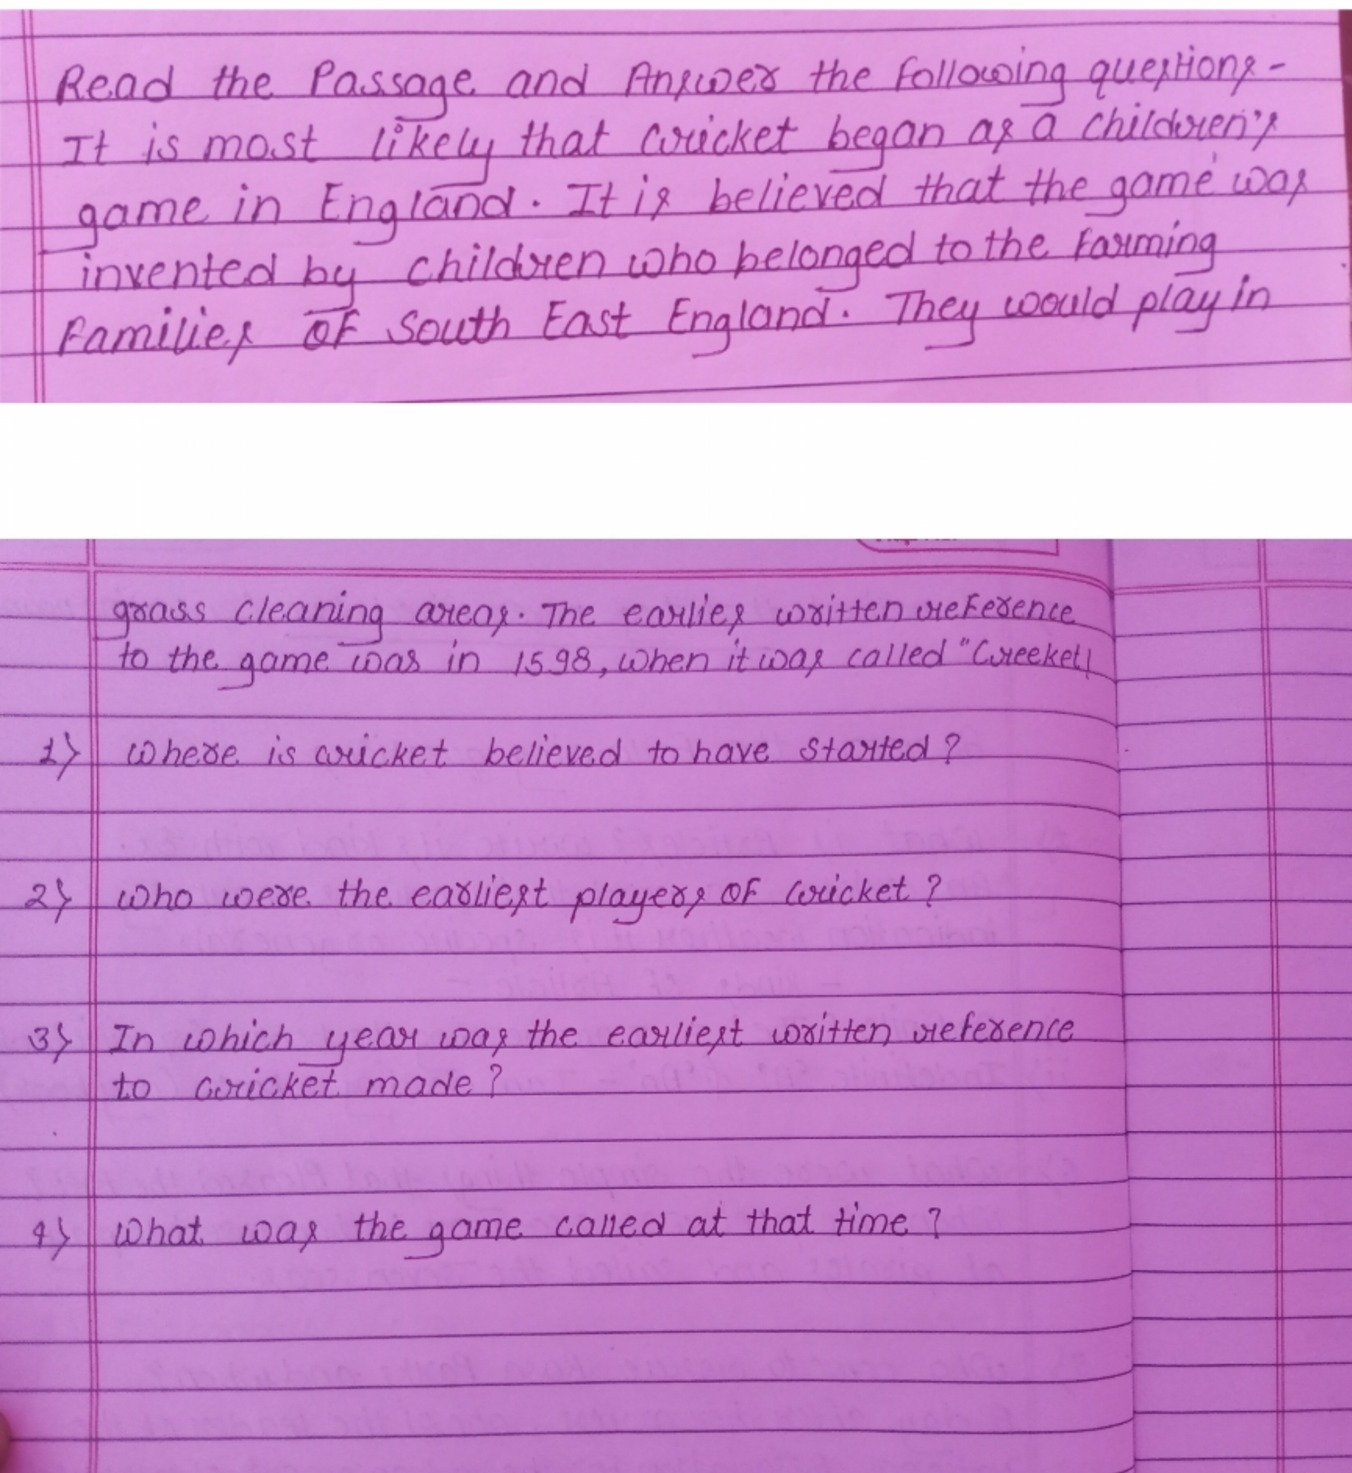 Read the Passage and Answer the following questions-
It is most likely that cricket began as a children's
game in England. It is believed that the game was
invented by children who belonged to the farming
families of South East England. They would play in
grass cleaning areas. The earlies written reference
to the game was in 1598, when it was called "Creeket
1) Where is cricket believed to have started?
2) Who were the earliest players of cricket?
3) In which year was the earliest written reference
to cricket made?
4) What was the game called at that time?